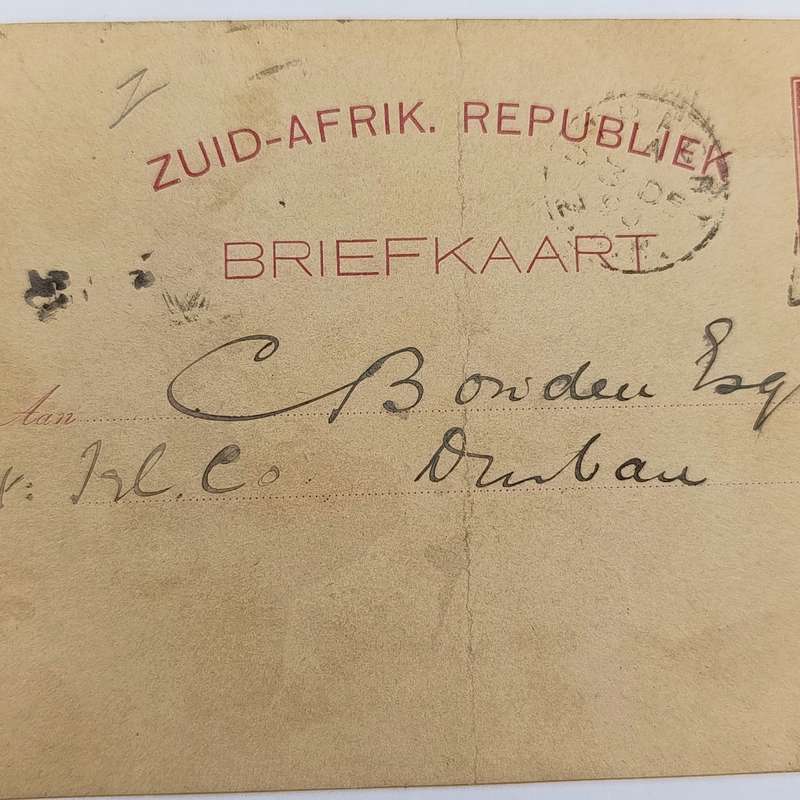 ZUID-AFRIK. REPUBLIEK
BRIEFKAART
Aan C Bowden Esq
Co. Durban